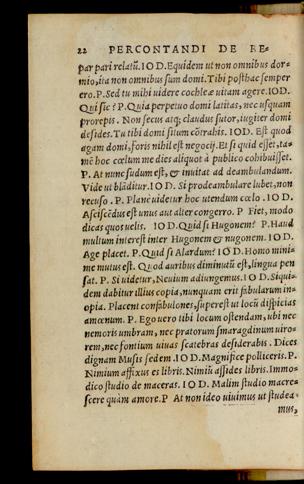 22 PERCONTANDI DE RE-
par pari relatũ. IOD. Equidem ut non omnibus dor-
mio, ita non omnibus sum domi. Tibi posthac semper
ero. P. Sed tu mihi uidere cochleæ uitam agere. IOD.
Qui sic? P. Quia perpetuo domi latitas, nec usquam
prorepis. Non secus atq; claudus sutor, iugiter domi
desides. Tu tibi domi situm cõtrahis. IOD. Est quod
agam domi, foris nihil est negocij. Et si quid esset, ta-
mẽ hoc cœlum me dies aliquot à publico cohibuisset.
P. At nunc sudum est, & inuitat ad deambulandum.
Vide ut blãditur. IOD. Si prodeambulare lubet, non
recuso. P. Planè uidetur hoc utendum cœlo. IOD.
Asciscẽdus est unus aut alter congerro. P Fiet, modo
dicas quos uelis. IOD. Quid si Hugonem? P. Haud
multum interest inter Hugonem & nugonem. IOD.
Age placet. P. Quid si Alardum? IOD. Homo mini-
me mutus est. Quod auribus diminutũ est, lingua pen
sat. P. Si uidetur, Neuium adiungemus. IOD. Siqui-
dem dabitur illius copia, nunquam erit fabularum in-
opia. Placent confabulones, superest ut locũ dispicias
amœnum. P. Ego uero tibi locum ostendam, ubi nec
nemoris umbram, nec pratorum smaragdinum uiro-
rem, nec fontium uiuas scatebras desiderabis. Dices
dignam Musis sedem. IOD. Magnifice polliceris. P.
Nimium affixus es libris. Nimiũ assides libris. Immo-
dico studio te maceras. IOD. Malim studio macre-
scere quàm amore. P At non ideo uiuimus ut studea-
mus,